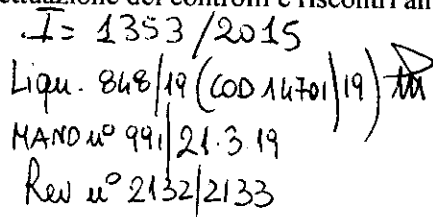 ettuazione dei controlli e riscontri an
I = 1353/2015
Liqu. 848/19 (COD 14701/19)
MAND nº 991/21.3.19
Rev nº 2132/2133